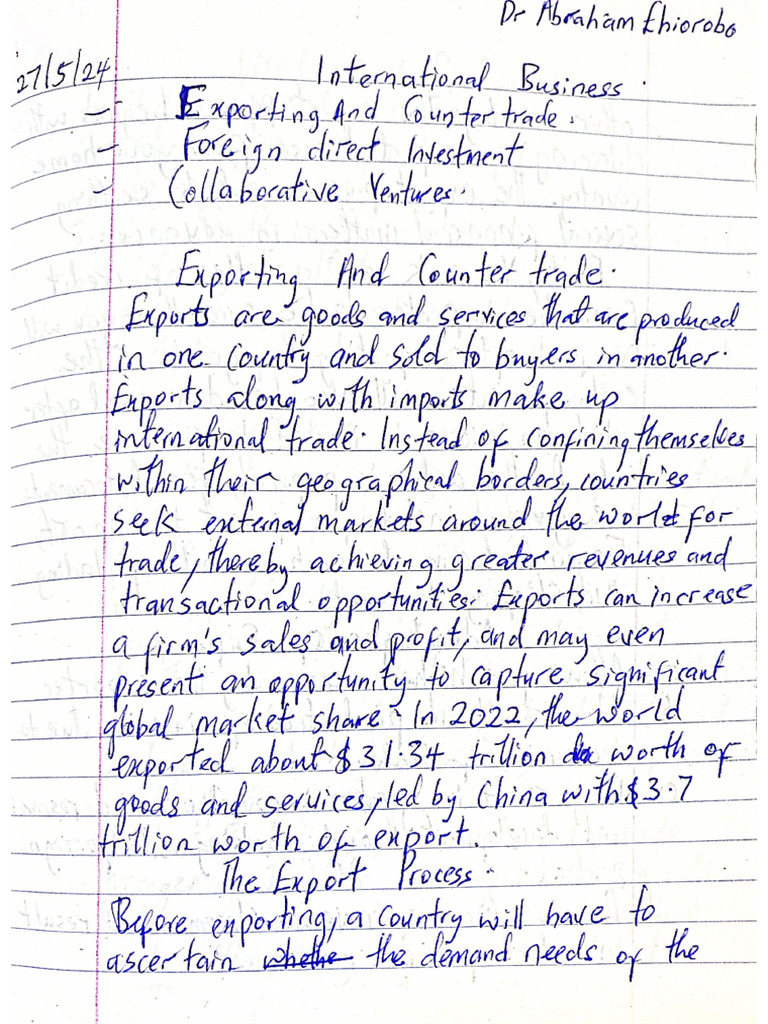 Dr Abraham Ehiorobo
27/5/24
International Business.
- Exporting And Counter trade.
- Foreign direct Investment
- Collaborative Ventures.
Exporting And Counter trade.
Exports are goods and services that are produced
in one Country and sold to buyers in another.
Exports along with imports make up
international trade. Instead of confining themselves
within their geographical borders, countries
seek external markets around the world for
trade, thereby achieving greater revenues and
transactional opportunities. Exports can increase
a firm's sales and profit, and may even
present an opportunity to capture significant
global market share. In 2022, the world
exported about $31.34 trillion worth of
goods and services, led by China with $3.7
trillion worth of export.
The Export Process.
Before exporting, a Country will have to
ascertain whethe the demand needs of the